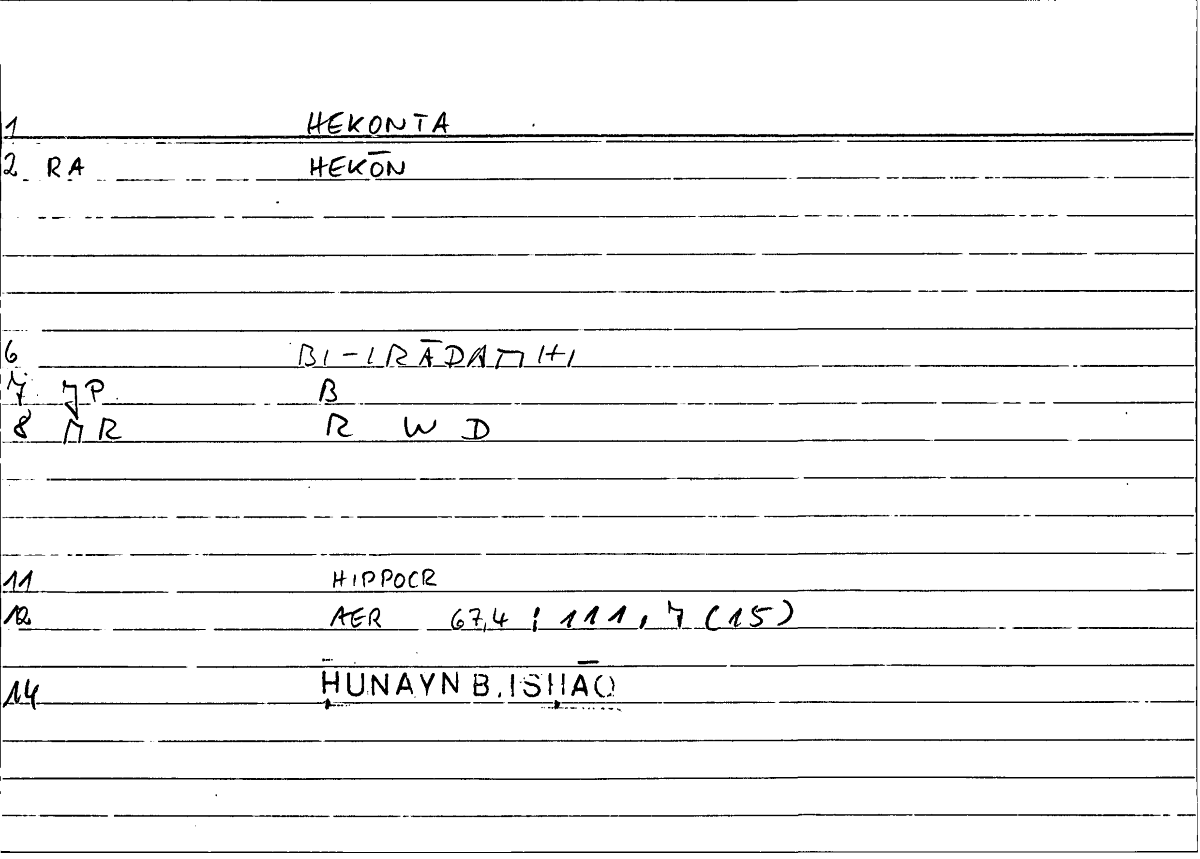 1 HEKONTA
2 RA HEKŌN
6 BI-IRĀDATIHI
7 JP B
8 NR R W D
11 HIPPOCR
12 AER 67,4 ; 111,7 (15)
14 ḤUNAYN B. ISḤĀQ